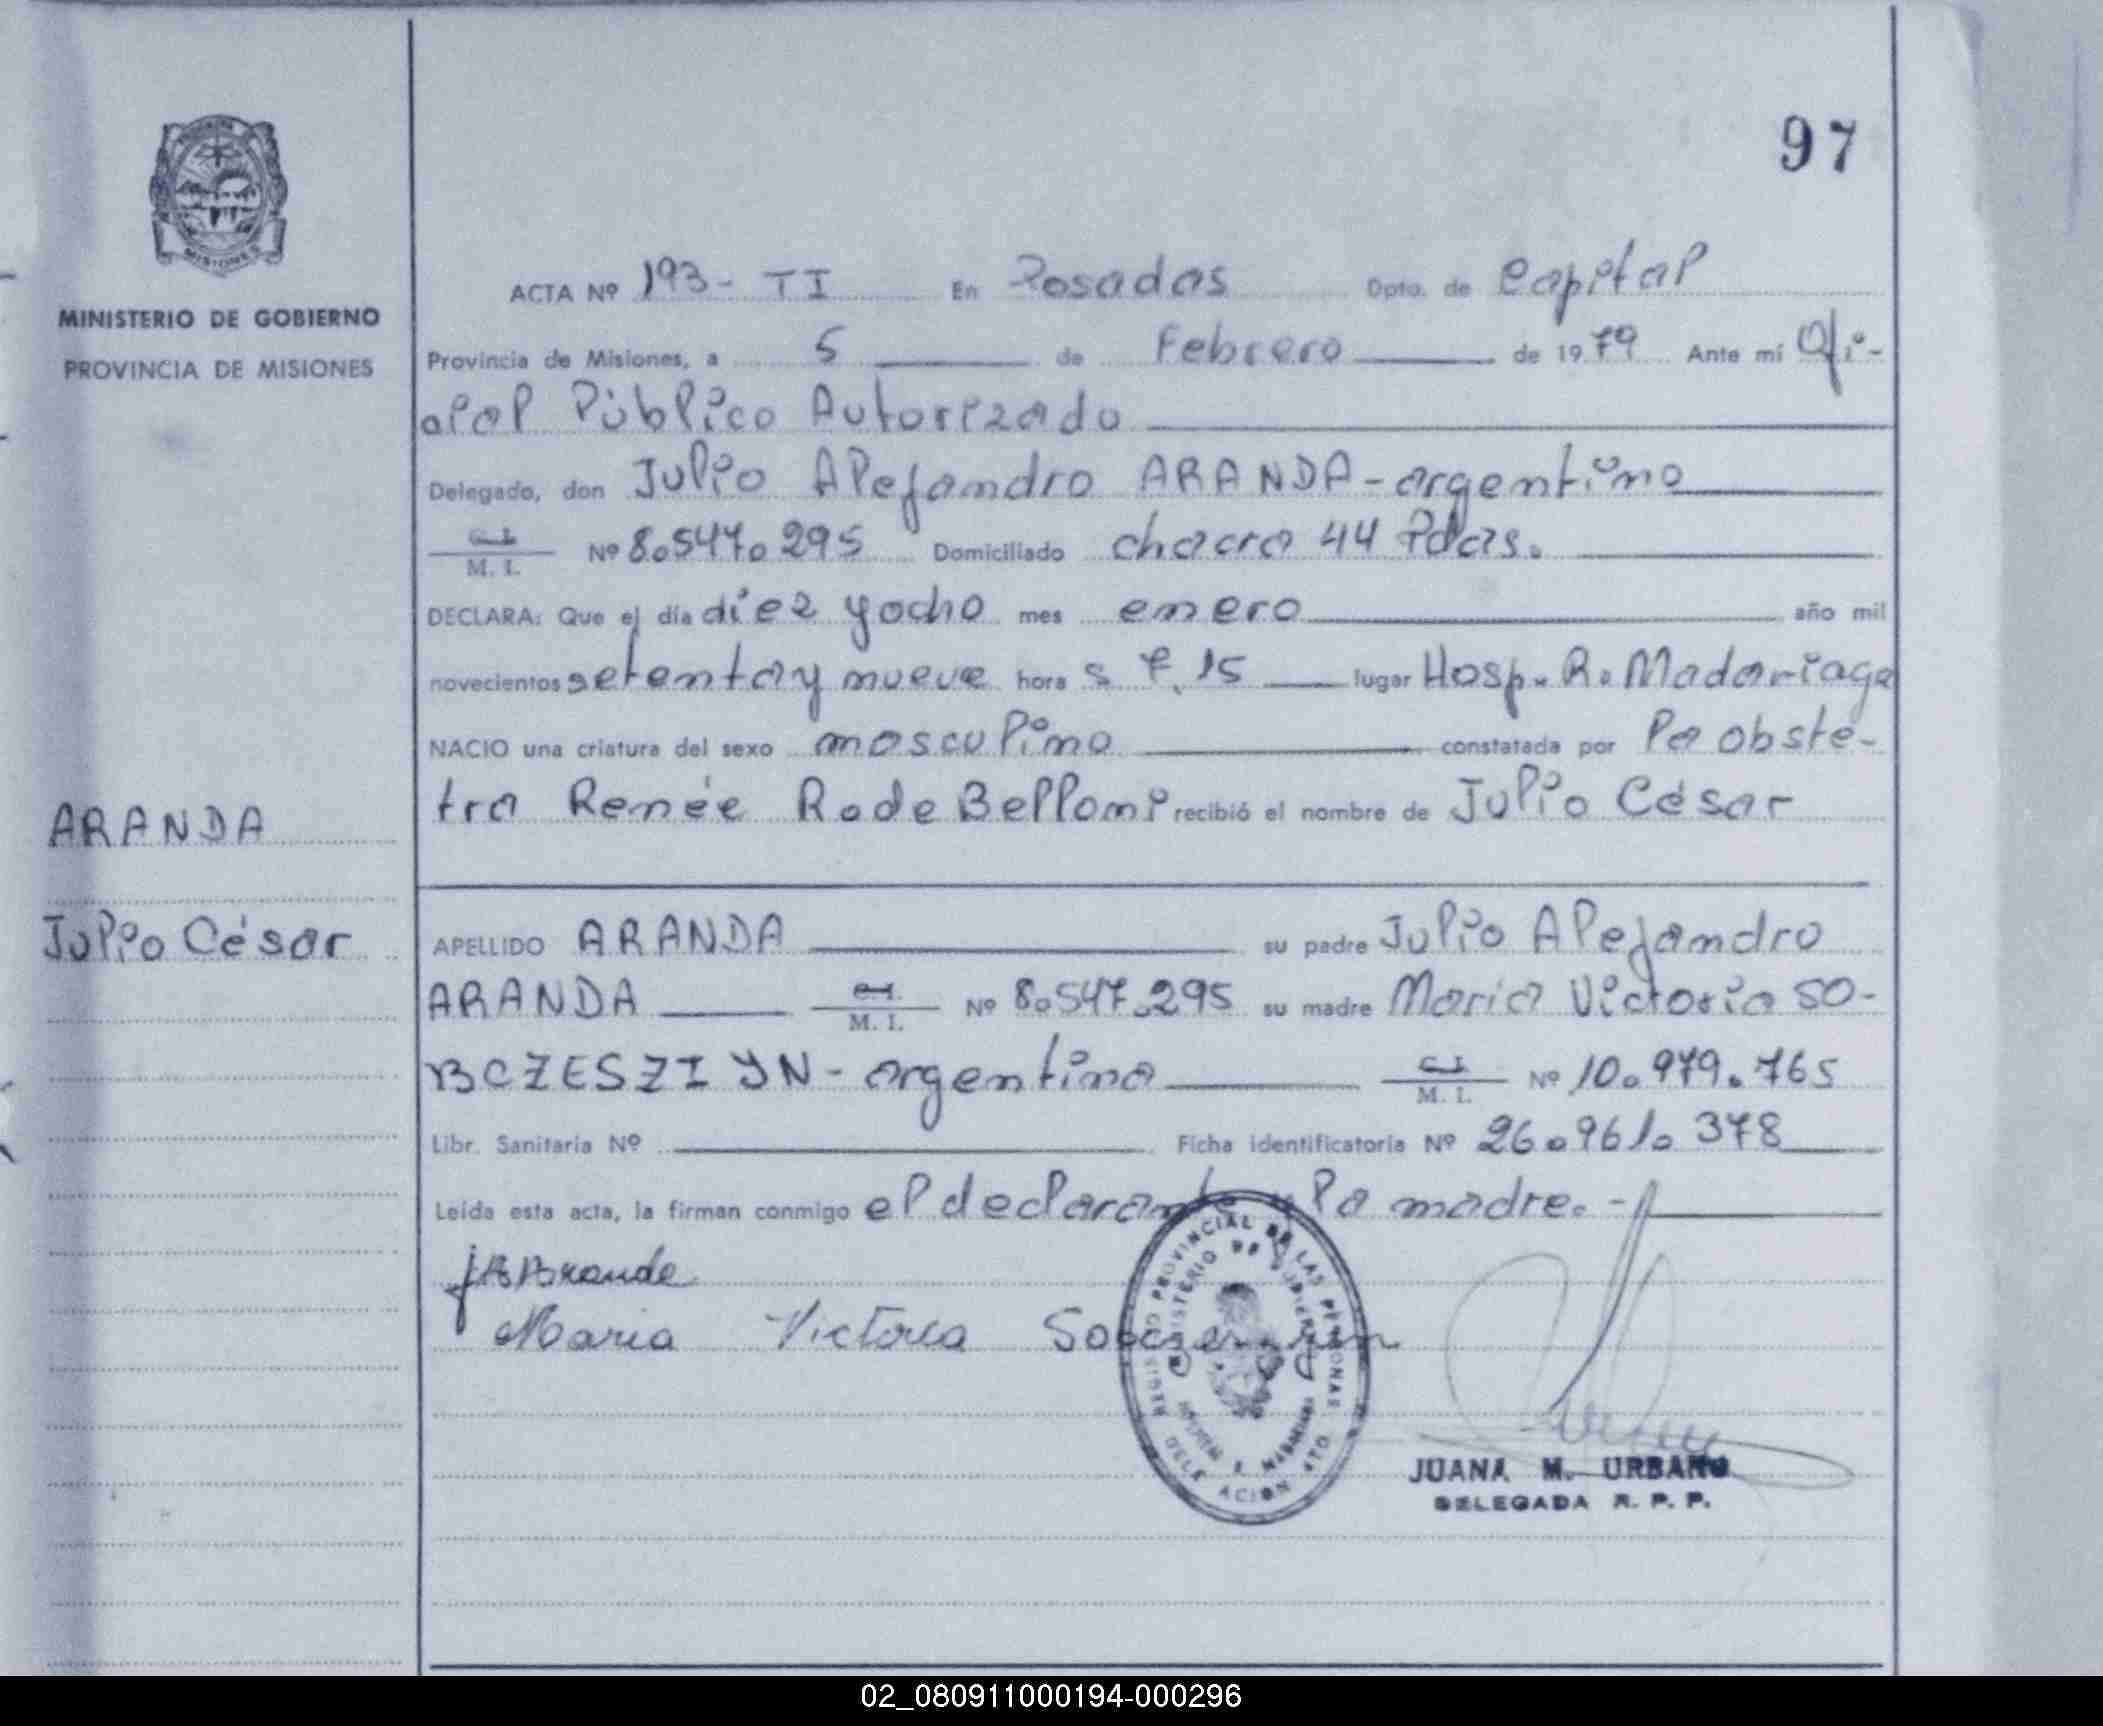 97
MINISTERIO DE GOBIERNO
PROVINCIA DE MISIONES
ACTA Nº 193- TI En Posadas Dpto. de Capital
Provincia de Misiones, a 5 de Febrero de 1979 Ante mí Ofi-
cial Público Autorizado
Delegado, don Julio Alejandro ARANDA-argentino
C.I. M. I. Nº 8.547.295 Domiciliado chacra 44 Pdas.
DECLARA: Que el día diez y ocho mes enero año mil
novecientos setenta y nueve hora s 7.15 lugar Hosp. R. Madariaga
NACIO una criatura del sexo masculino constatada por la obste-
tra Renée R. de Belloni recibió el nombre de Julio César
ARANDA
Julio César
APELLIDO ARANDA su padre Julio Alejandro
ARANDA C.I. M. I. Nº 8.547.295 su madre María Victoria SO-
BCZESZIYN-argentina C.I. M. I. Nº 10.979.765
Libr. Sanitaria Nº Ficha identificatoria Nº 26.961.378
Leída esta acta, la firman conmigo el declarante y la madre.-
Maria Victoria
REGISTRO PROVINCIAL DE LAS PERSONAS
MINISTERIO DE GOBIERNO
MISIONES
JUANA M. URBANO
DELEGADA R. P. P.
02_080911000194-000296